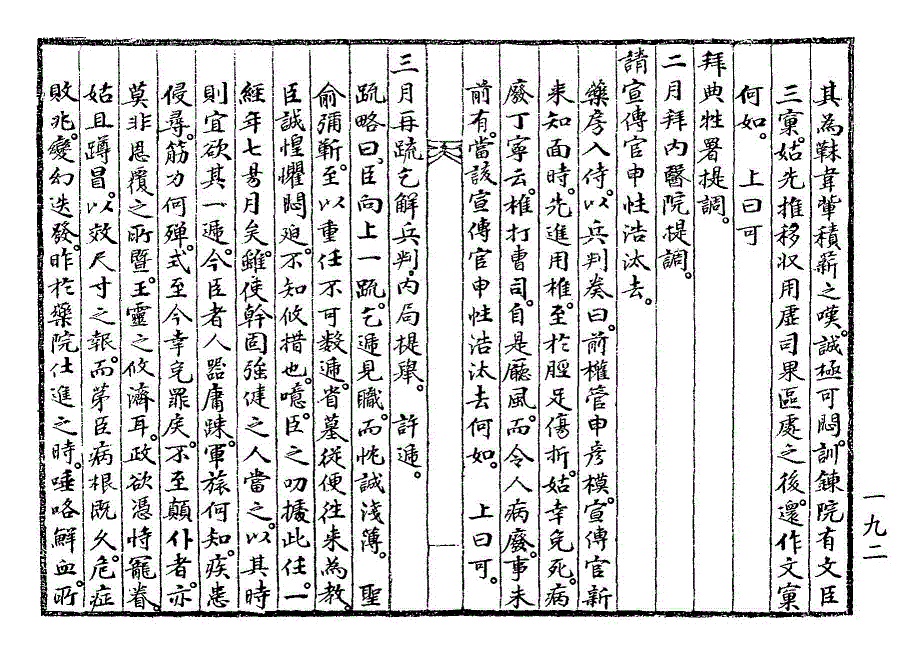 其為靺韋韏積薪之嘆。誠極可悶。訓鍊院有文臣
三窠。姑先推移収用。虛司果區處之後。還作文窠
何如。 上曰可
拜典牲署提調。
二月拜內醫院提調。
請宣傳官申性浩汰去。
藥房入侍。以兵判奏曰。前權管申彥模。宣傳官新
来知面時。先進用椎。至於脛足傷折。姑幸免死。病
廢丁寧云。椎打曹司。自是廳風。而令人病廢。事未
前有。當該宣傳官申性浩汰去何如。 上曰可。
三月再疏乞解兵判,內局提擧。 許遞。
疏略曰。臣向上一疏。乞遞見職。而忱誠淺薄。 聖
俞彌靳。至以重任不可數遞。省墓從便往来為教。
臣誠惶懼悶迫。不知攸措也。噫。臣之叨據此任。一
經年七易月矣。雖使幹固強健之人當之。以其時
則宜欲其一遞。今臣者人器庸踈。軍旅何知。疾患
侵尋。筋力何殫。式至今幸免罪戾。不至顛仆者。亦
莫非恩覆之所曁。王靈之攸濟耳。政欲憑恃寵眷。
姑且蹲冒。以效尺寸之報。而苐臣病根既久。危症
敗兆。變幻迭發。昨於藥院仕進之時。唾咯鮮血。所
一九二